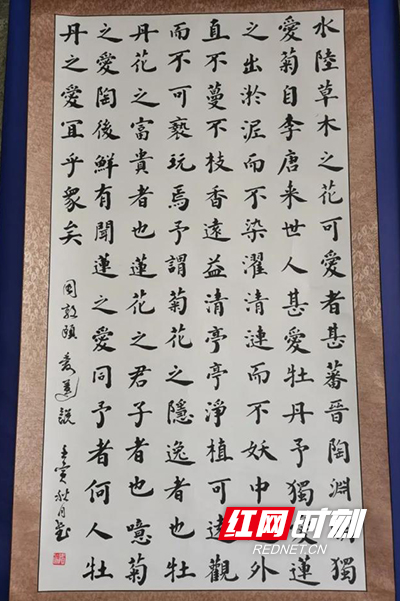 水陸草木之花可愛者甚蕃晉陶淵獨
愛菊自李唐来世人甚愛牡丹予獨愛蓮
之出淤泥而不染濯清漣而不妖中外
直不蔓不枝香遠益清亭亭淨植可遠觀
而不可褻玩焉予謂菊花之隱逸者也牡
丹花之富貴者也蓮花之君子者也噫菊
之愛陶後鮮有聞蓮之愛同予者何人牡
丹之愛宜乎眾矣
周敦頤 愛蓮說 壬寅秋月
红网时刻
REDNET.CN